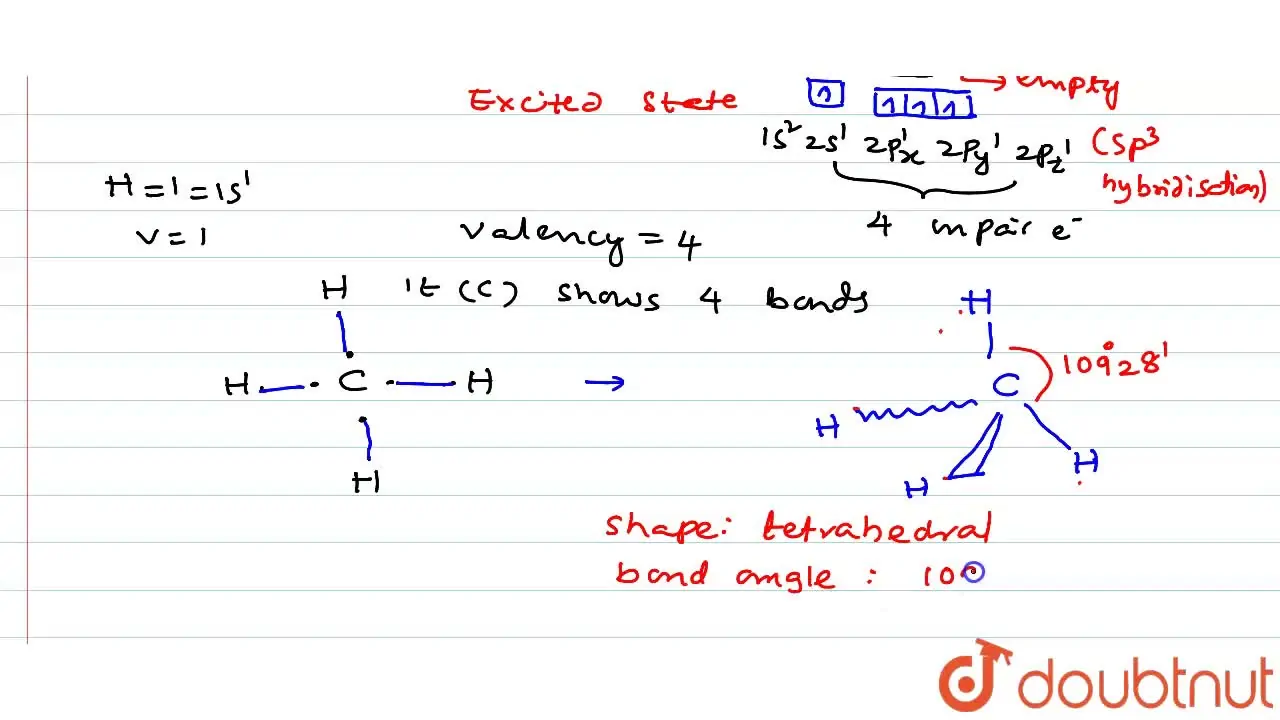 Excited state → empty
1 1 1 1
1s² 2s¹ 2px¹ 2py¹ 2pz¹ (sp³
hybridisation)
H = 1 = 1s¹
v = 1
4 unpair e⁻
valency = 4
It (C) shows 4 bonds
H
H C H →
H
H
C
109°28'
H
H
H
shape: tetrahedral
bond angle : 109
doubtnut